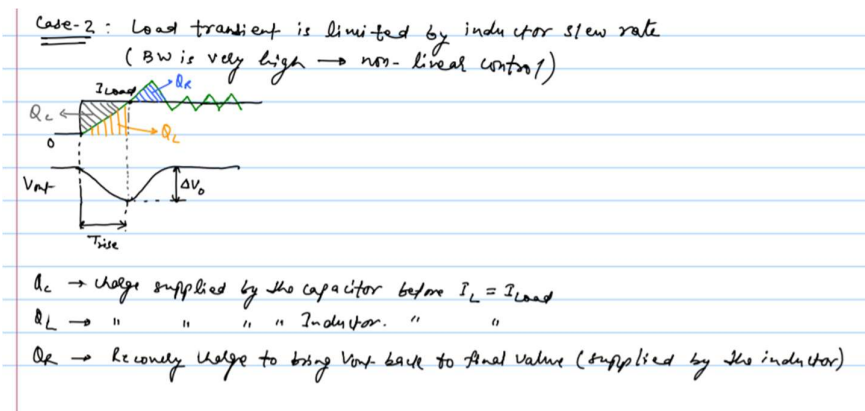 Case-2 : Load transient is limited by inductor slew rate
( BW is very high → non-linear control)
ILOAD
QR
QC
QL
0
Vout
ΔVo
Trise
Qc → charge supplied by the capacitor before IL = ILOAD
QL → " " " " Inductor. " "
QR → Recovery charge to bring Vout back to final value (supplied by the inductor)